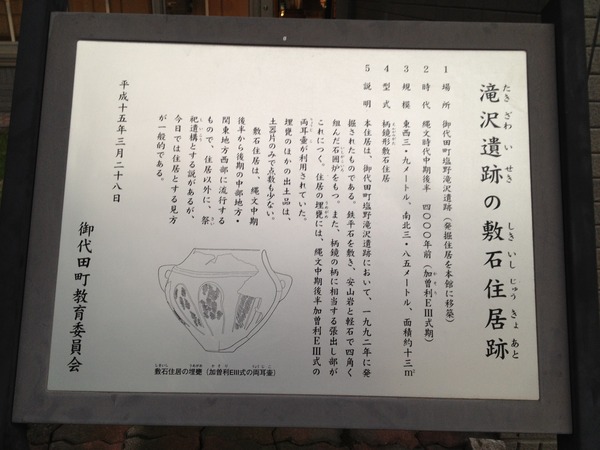 滝沢遺跡の敷石住居跡
たきざわいせき しきいしじゅうきょあと
1 場所 御代田町塩野滝沢遺跡（発掘住居を本館に移築）
2 時代 縄文時代中期後半 四〇〇〇年前（加曽利EⅢ式期）
かそり
3 規模 東西三・九メートル、南北三・八五メートル、面積約十三㎡
4 型式 柄鏡形敷石住居
5 説明 本住居は、御代田町塩野滝沢遺跡において、一九九二年に発
掘されたものである。鉄平石を敷き、安山岩と軽石で四角く
組んだ石囲炉をもつ。また、柄鏡の柄に相当する張出し部が
これにつく。住居の埋甕には、縄文中期後半加曽利EⅢ式の
両耳壷が利用されていた。
埋甕のほかの出土品は、
土器片のみで点数も少ない。
敷石住居は、縄文中期
後半から後期の中部地方・
関東地方西部に流行する
もので、住居以外に、祭
祀遺構とする説があるが、
今日では住居とする見方
が一般的である。
平成十五年三月二十八日
御代田町教育委員会
敷石住居の埋甕（加曽利EⅢ式の両耳壷）